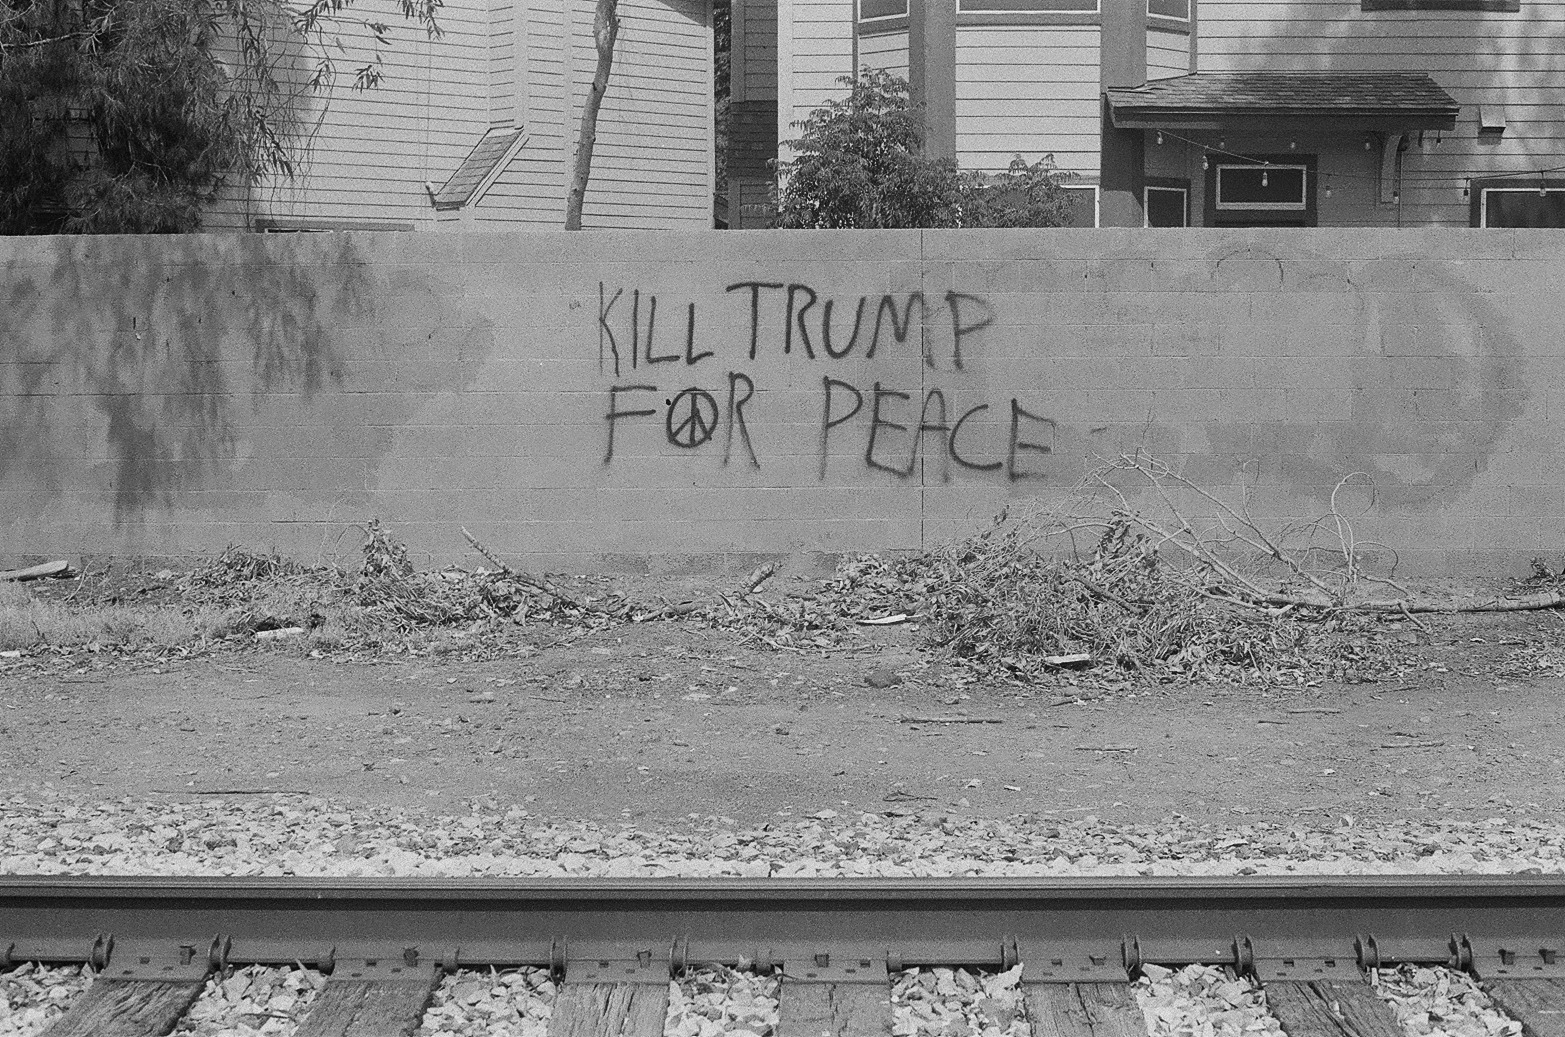 KILL TRUMP
FOR PEACE